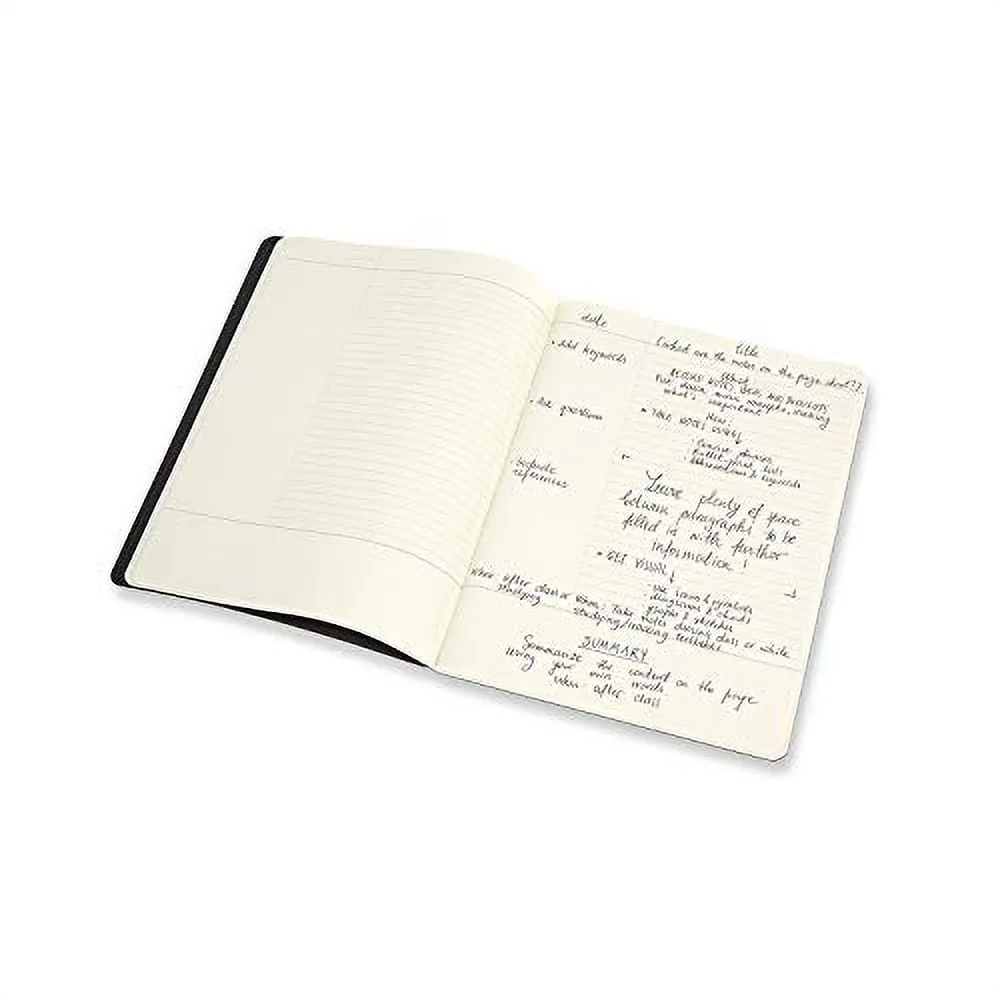 date
Title
Content are the notes on the page about?
• Add keywords
What:
RECORD NOTES, IDEAS, AND THOUGHTS
Put down main concepts,
what's important
• Ask questions
How:
• TAKE NOTES
• Concise phrases
• Bullet-point lists
• Abbreviations & keywords
• Include
references
Leave plenty of space
between paragraphs to be
filled in with further
information!
• GET VISUAL
• Use icons & symbols
diagrams & charts
graphs & sketches
When: after class or
studying
Take notes during class or while
studying/reading textbook
SUMMARY
Summarize the content on the page
using your own words
When after class